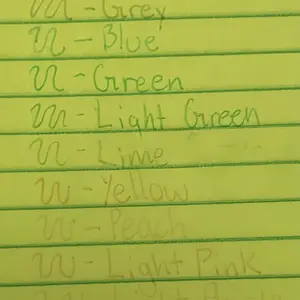 - Grey
- Blue
- Green
- Light Green
- Lime
- Yellow
- Peach
- Light Pink